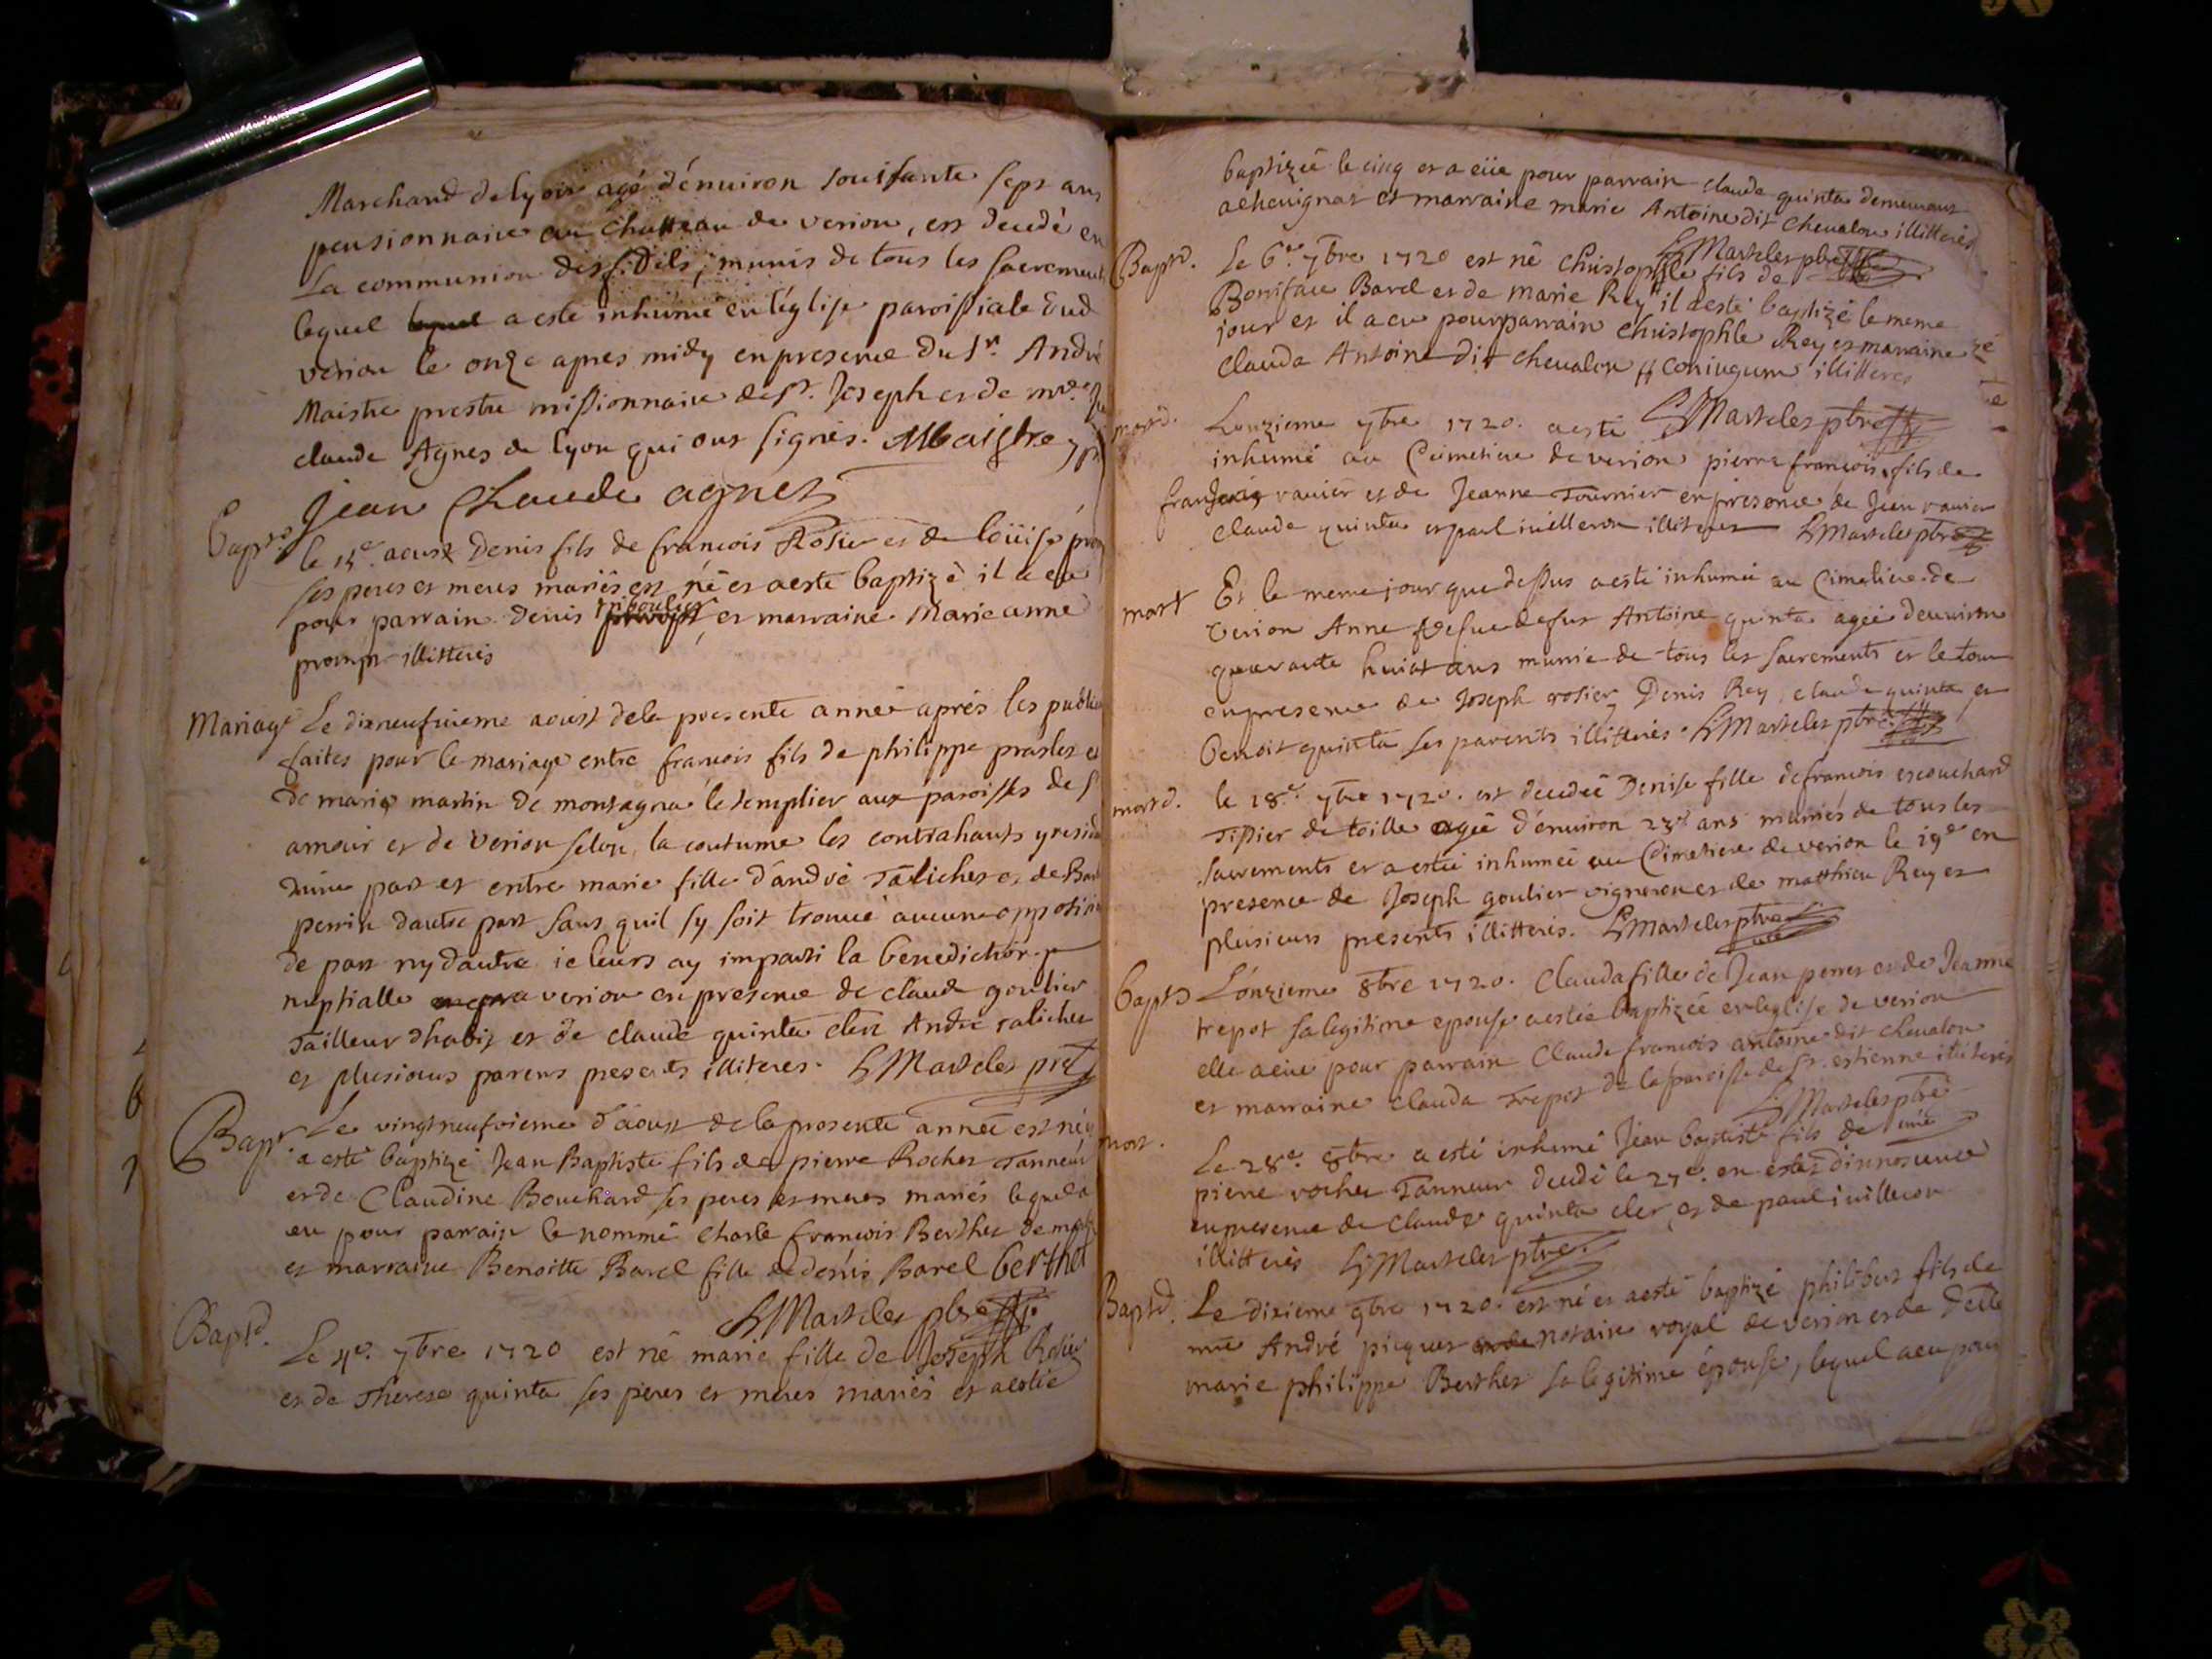 Marchand de lyon agé d'enuiron soissante sept ans
pensionnaire au chatteau de verion, est decedé en
La communion des fidels, munis de tous les sacrements
lequel a esté inhumé en l'église paroissiale dud
verion le onze apres midy en presence du Sr. André
Maistre prestre missionnaire de St. Joseph et de
claude Agnes de lyon qui ont signés. Maistre
Jean Claude agnes
Bapt
le 15e. aoust Denis fils de francois Rosier et de loüise
ses peres et meres mariés est né et a esté baptizé il a eu
pour parrain denis et marraine Marie anne
illitterés
Mariage Le dixneufuieme aoust de la presente année aprés les
faites pour le mariage entre francois fils de philippe et
de marie martin de montagna le templier aux paroisses de St
amour et de verion selon la coutume les contrahants
dune part et entre marie fille d'andré Taliches et de
perrin dautre part sans quil sy soit trouué aucune opposition
de part ny dautre ie leurs ay imparti la benediction
nuptialle a verion en presence de claude goulier
Tailleur dhabis et de claude quinta clerc André Taliches
et plusieurs parens presents illiteres. Marteles
Bapt. Le vingtneufuieme d'aoust de la presente année est né
a esté baptizé Jean Baptiste fils de pierre Rochet Tanneur
et de Claudine Bouchard ses peres et meres mariés lequel a
eu pour parrain le nommé Charle francois Berthet
et marraine Benoitte Barel fille de denis Barel berthet
Marteles pbre
Baptd. Le 4e. 7bre 1720 est né marie fille de Joseph Rosier
et de Therese quinta ses peres et meres mariés et a estée
baptizée le cinq et a eüe pour parrain claude quinta demeurant
a et marraine marie Antoine dit Cheualon illitterés
Marteles pbre
Baptd. Le 6e. 7bre 1720 est né christophle fils de
Boniface Barel et de marie Rey il a esté baptizé le meme
jour et il a eu pour parrain christophle Rey et marraine
Clauda Antoine dit cheualon illitteres
Marteles pbre
mortd. Lonzieme 7bre 1720. a esté
inhumé au Cimetiere de verion pierre francois fils de
vanier et de Jeanne Tournier en presence de Jean vanier
Claude quinta et paul iuilleron illiteres Marteles pbre
mort Et le meme jour que dessus a esté inhumée au Cimetiere de
verion Anne de fut Antoine quinta agée denuiron
quarante huiat ans munie de tous les sacrements et le tout
en presence de Joseph rosier Denis Rey, claude quinta et
benoit quinta ses parents illitterés. Marteles pbre
mortd. le 18e. 7bre 1720. est decedée Denise fille de francois
Tissier de toille agée d'enuiron 23 ans munies de tous les
sacrements et a estée inhumée au Cimetiere de verion le 19e en
presence de Joseph goulier vigneron et de matthieu Rey et
plusieurs presents illitterés. Marteles pbre
baptd L'onzieme 8bre 1720. Clauda fille de Jean et de Jeanne
trepot sa legitime epouse a estée baptizée en leglise de verion
elle a eüe pour parrain Claude francois antoine dit cheualon
et marraine Clauda Trepot de la paroisse de St. estienne illiterés
Marteles pbre
mort. Le 28e. 8bre a esté inhumé Jean baptiste fils de
pierre rochet Tanneur decedé le 27e. en estat dinnosence
en presence de Claude quinta cler, et de paul iuilleron
illitterés Marteles pbre
Baptd. Le dixieme 9bre 1720. est né et a esté baptizé philibert fils de
André picquet notaire royal de verion et de
marie philippe Berthet sa legitime épouse, lequel a eu pour